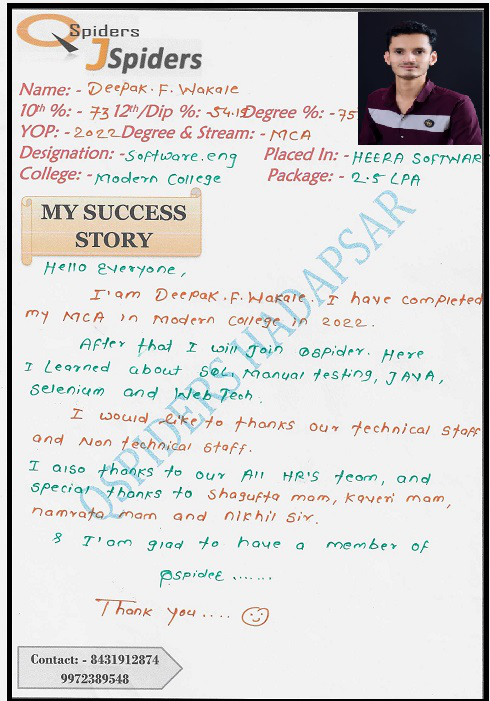 QSpiders
JSpiders
Name: - Deepak. F. Wakale
10th %: - 73 12th/Dip %: -54.15 Degree %: -75
YOP: - 2022 Degree & Stream: - MCA
Designation: -Software.eng Placed In: - HEERA SOFTWAR
College: - Modern College Package: - 2.5 LPA
MY SUCCESS
STORY
Hello Everyone,
I'am Deepak. F. Wakale.. I have completed
my MCA in Modern College in 2022.
After that I will join Qspider. Here
I Learned about SQL, Manual testing, JAVA,
Selenium and Web Tech.
I would like to thanks our technical staff
and Non technical staff.
I also thanks to our All HR'S team, and
special thanks to Shagufta mam, Kaveri mam,
namrata mam and nikhil sir.
& I'am glad to have a member of
Qspider ......
Thank you ....
QSPIDERS HADAPSAR
Contact: - 8431912874
9972389548